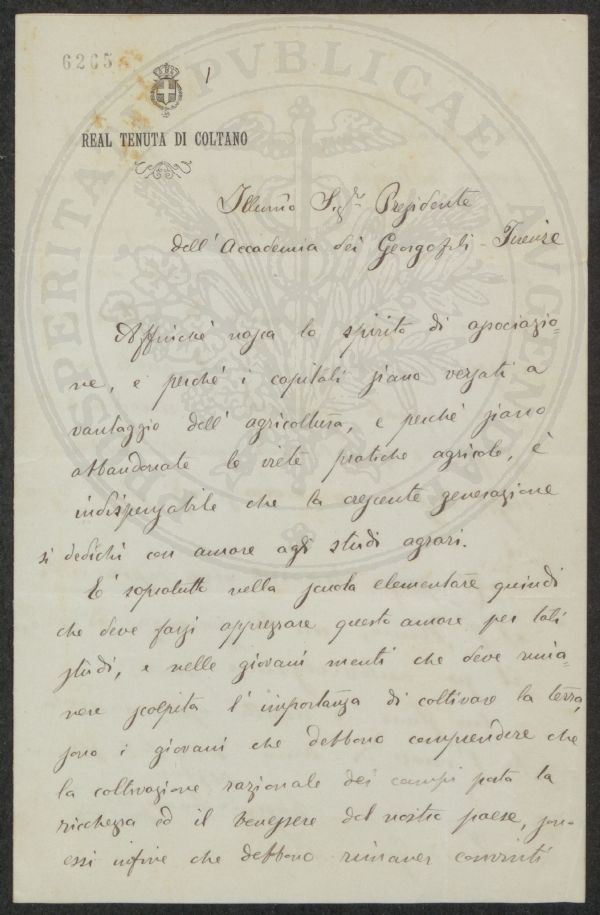 6265
1
REAL TENUTA DI COLTANO
PROSPERITATI PUBLICAE AUGENDAE
Illumo Sigr Presidente
dell' Accademia dei Georgofili - Firenze
Affinché nasca lo spirito di associazio=
ne, e perché i capitali siano versati a
vantaggio dell' agricoltura, e perché siano
abbandonate le viete pratiche agricole, è
indispensabile che la crescente generazione
si dedichi con amore agli studi agrari.
È sopratutto nella scuola elementare quindi
che deve farsi apprezzare questo amore per tali
studi, e nelle giovani menti che deve rima=
nere scolpita l' importanza di coltivare la terra,
sono i giovani che debbono comprendere che
la coltivazione razionale dei campi porta la
ricchezza ed il benessere del nostro paese, sono
essi infine che debbono rimaner convinti